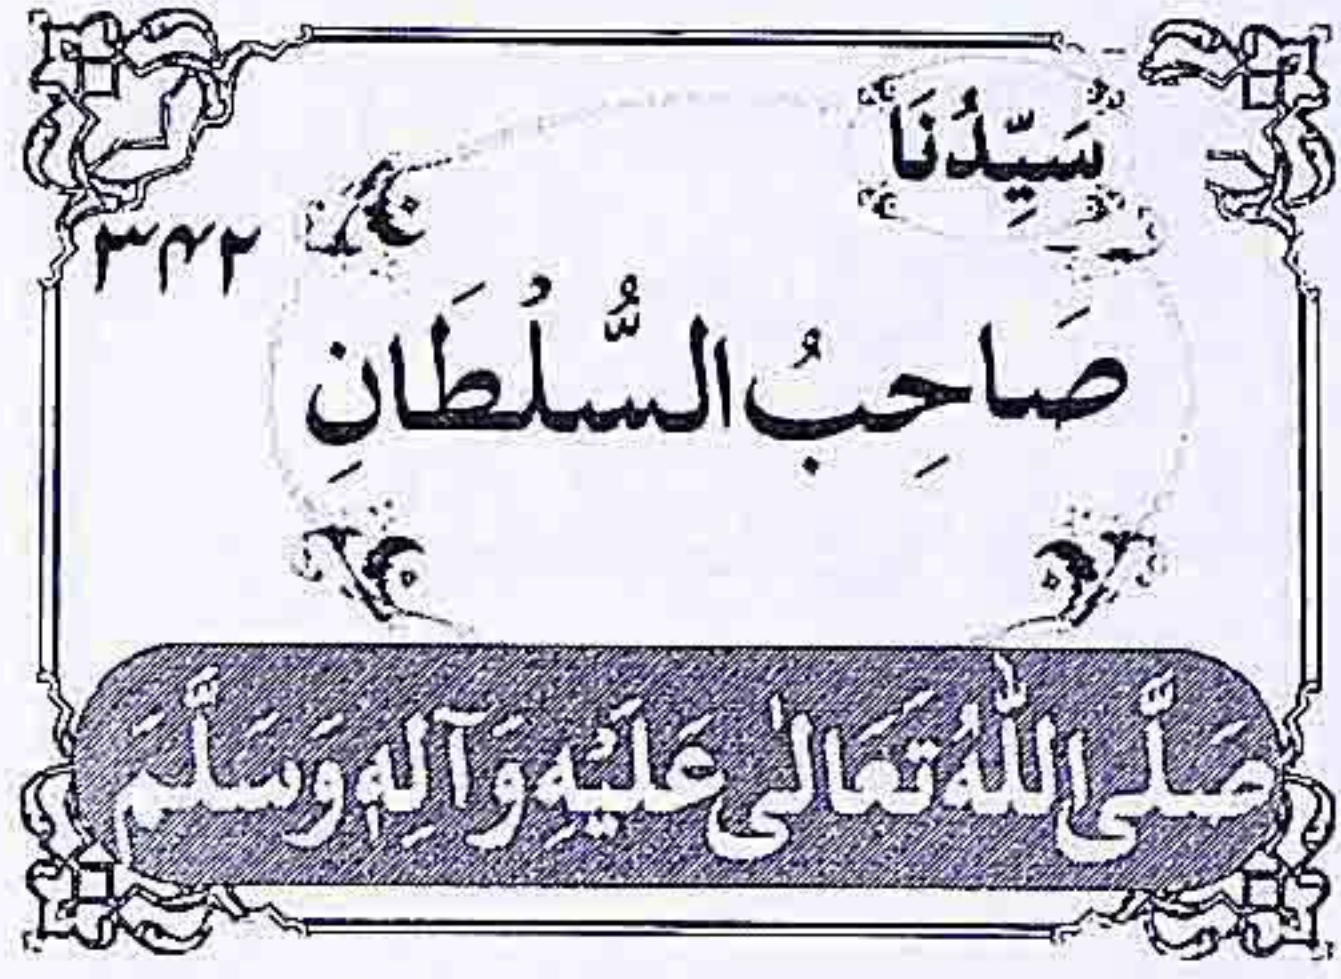 سَيِّدُنَا
۳۴۲
صَاحِبُ السُّلُطَانِ
صَلَّى اللّٰهُ تَعَالٰى عَلَيْهِ وَآلِهٖ وَسَلَّمَ